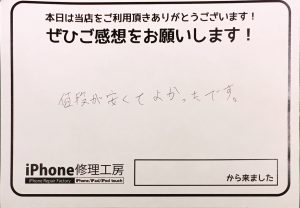 本日は当店をご利用頂きありがとうございます！
ぜひご感想をお願いします！
値段が安くてよかったです。
iPhone修理工房
iPhone Repair Factory iPhone/iPad/iPod touch
から来ました